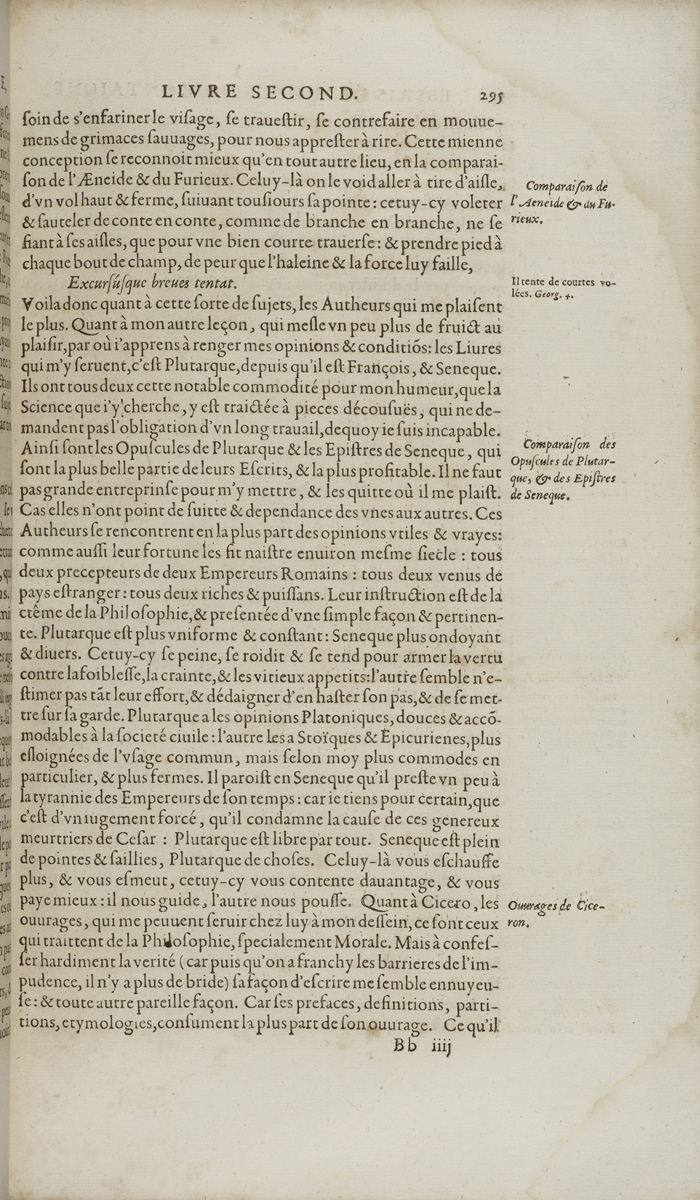 LIVRE SECOND. 295
ſoin de s'enfariner le viſage, ſe traueſtir, ſe contrefaire en mouue-
mens de grimaces ſauuages, pour nous appreſter à rire. Cette mienne
conception ſe reconnoit mieux qu'en tout autre lieu, en la comparai-
ſon de l'Æneide & du Furieux. Celuy-là on le void aller à tire d'aiſle,
d'vn vol haut & ferme, ſuiuant touſiours ſa pointe: cetuy-cy voleter
& ſauteler de conte en conte, comme de branche en branche, ne ſe
fiant à ſes aiſles, que pour vne bien courte trauerſe: & prendre pied à
chaque bout de champ, de peur que l'haleine & la force luy faille,
Excurſúſque breues tentat.
Voila donc quant à cette ſorte de ſujets, les Autheurs qui me plaiſent
le plus. Quant à mon autre leçon, qui meſle vn peu plus de fruict au
plaiſir, par où i'apprens à renger mes opinions & conditiõs: les Liures
qui m'y ſeruent, c'eſt Plutarque, depuis qu'il eſt François, & Seneque.
Ils ont tous deux cette notable commodité pour mon humeur, que la
Science que i'y cherche, y eſt traictée à pieces découſuës, qui ne de-
mandent pas l'obligation d'vn long trauail, dequoy ie ſuis incapable.
Ainſi ſont les Opuſcules de Plutarque & les Epiſtres de Seneque, qui
ſont la plus belle partie de leurs Eſcrits, & la plus profitable. Il ne faut
pas grande entreprinſe pour m'y mettre, & les quitte où il me plaiſt.
Cas elles n'ont point de ſuitte & dependance des vnes aux autres. Ces
Autheurs ſe rencontrent en la plus part des opinions vtiles & vrayes:
comme auſſi leur fortune les fit naiſtre enuiron meſme ſiecle: tous
deux precepteurs de deux Empereurs Romains: tous deux venus de
pays eſtranger: tous deux riches & puiſſans. Leur inſtruction eſt de la
ctême de la Philoſophie, & preſentée d'vne ſimple façon & pertinen-
te. Plutarque eſt plus vniforme & conſtant: Seneque plus ondoyant
& diuers. Cetuy-cy ſe peine, ſe roidit & ſe tend pour armer la vertu
contre la foibleſſe, la crainte, & les vitieux appetits: l'autre ſemble n'e-
ſtimer pas tãt leur effort, & dédaigner d'en haſter ſon pas, & de ſe met-
tre ſur ſa garde. Plutarque a les opinions Platoniques, douces & accõ-
modables à la ſocieté ciuile: l'autre les a Stoïques & Epicurienes, plus
eſloignées de l'vſage commun, mais ſelon moy plus commodes en
particulier, & plus fermes. Il paroiſt en Seneque qu'il preſte vn peu à
la tyrannie des Empereurs de ſon temps: car ie tiens pour certain, que
c'eſt d'vn iugement forcé, qu'il condamne la cauſe de ces genereux
meurtriers de Ceſar: Plutarque eſt libre par tout. Seneque eſt plein
de pointes & ſaillies, Plutarque de choſes. Celuy-là vous eſchauffe
plus, & vous eſmeut, cetuy-cy vous contente dauantage, & vous
paye mieux: il nous guide, l'autre nous pouſſe. Quant à Cicero, les
ouurages, qui me peuuent ſeruir chez luy à mon deſſein, ce ſont ceux
qui traittent de la Philoſophie, ſpecialement Morale. Mais à confeſ-
ſer hardiment la verité (car puis qu'on a franchy les barrieres de l'im-
pudence, il n'y a plus de bride) ſa façon d'eſcrire me ſemble ennuyeu-
ſe: & toute autre pareille façon. Car ſes prefaces, definitions, parti-
tions, etymologies, conſument la plus part de ſon ouurage. Ce qu'il
Bb iiij
Comparaiſon de
l'Aeneide & du Fu-
rieux.
Il tente de courtes vo-
lées. Georg. 4.
Comparaiſon des
Opuſcules de Plutar-
que, & des Epiſtres
de Seneque.
Ouurages de Cice-
ron.